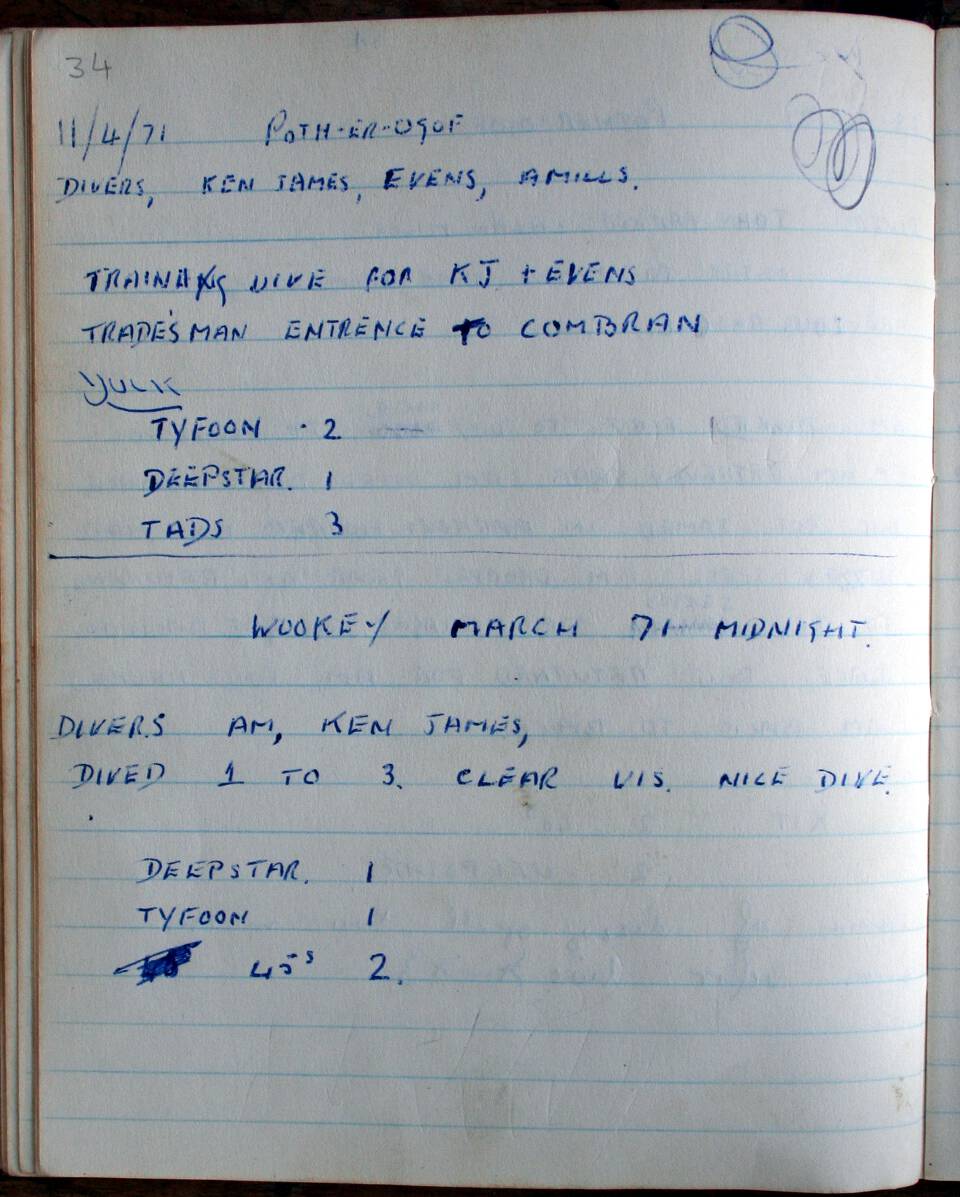 34
11/4/71 POTH-ER-OGOF
DIVERS, KEN JAMES, EVENS, A MILLS.
TRAINING DIVE FOR KJ + EVENS
TRADE'S MAN ENTRENCE TO COMBRAN
TYFOON 2
DEEPSTAR. 1
TADS 3
WOOKEY MARCH 71 MIDNIGHT.
DIVERS AM, KEN JAMES,
DIVED 1 TO 3. CLEAR VIS. NICE DIVE.
DEEPSTAR. 1
TYFOON 1
45s 2.